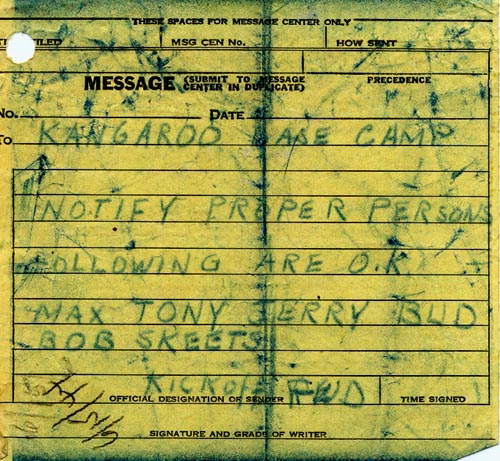 THESE SPACES FOR MESSAGE CENTER ONLY
FILED MSG CEN No. HOW SENT
MESSAGE (SUBMIT TO MESSAGE CENTER IN DUPLICATE) PRECEDENCE
No. DATE
To KANGAROO BASE CAMP
NOTIFY PROPER PERSONS
FOLLOWING ARE O.K
MAX TONY JERRY BUD
BOB SKEETS
KICKOFF FWD
OFFICIAL DESIGNATION OF SENDER TIME SIGNED
SIGNATURE AND GRADE OF WRITER